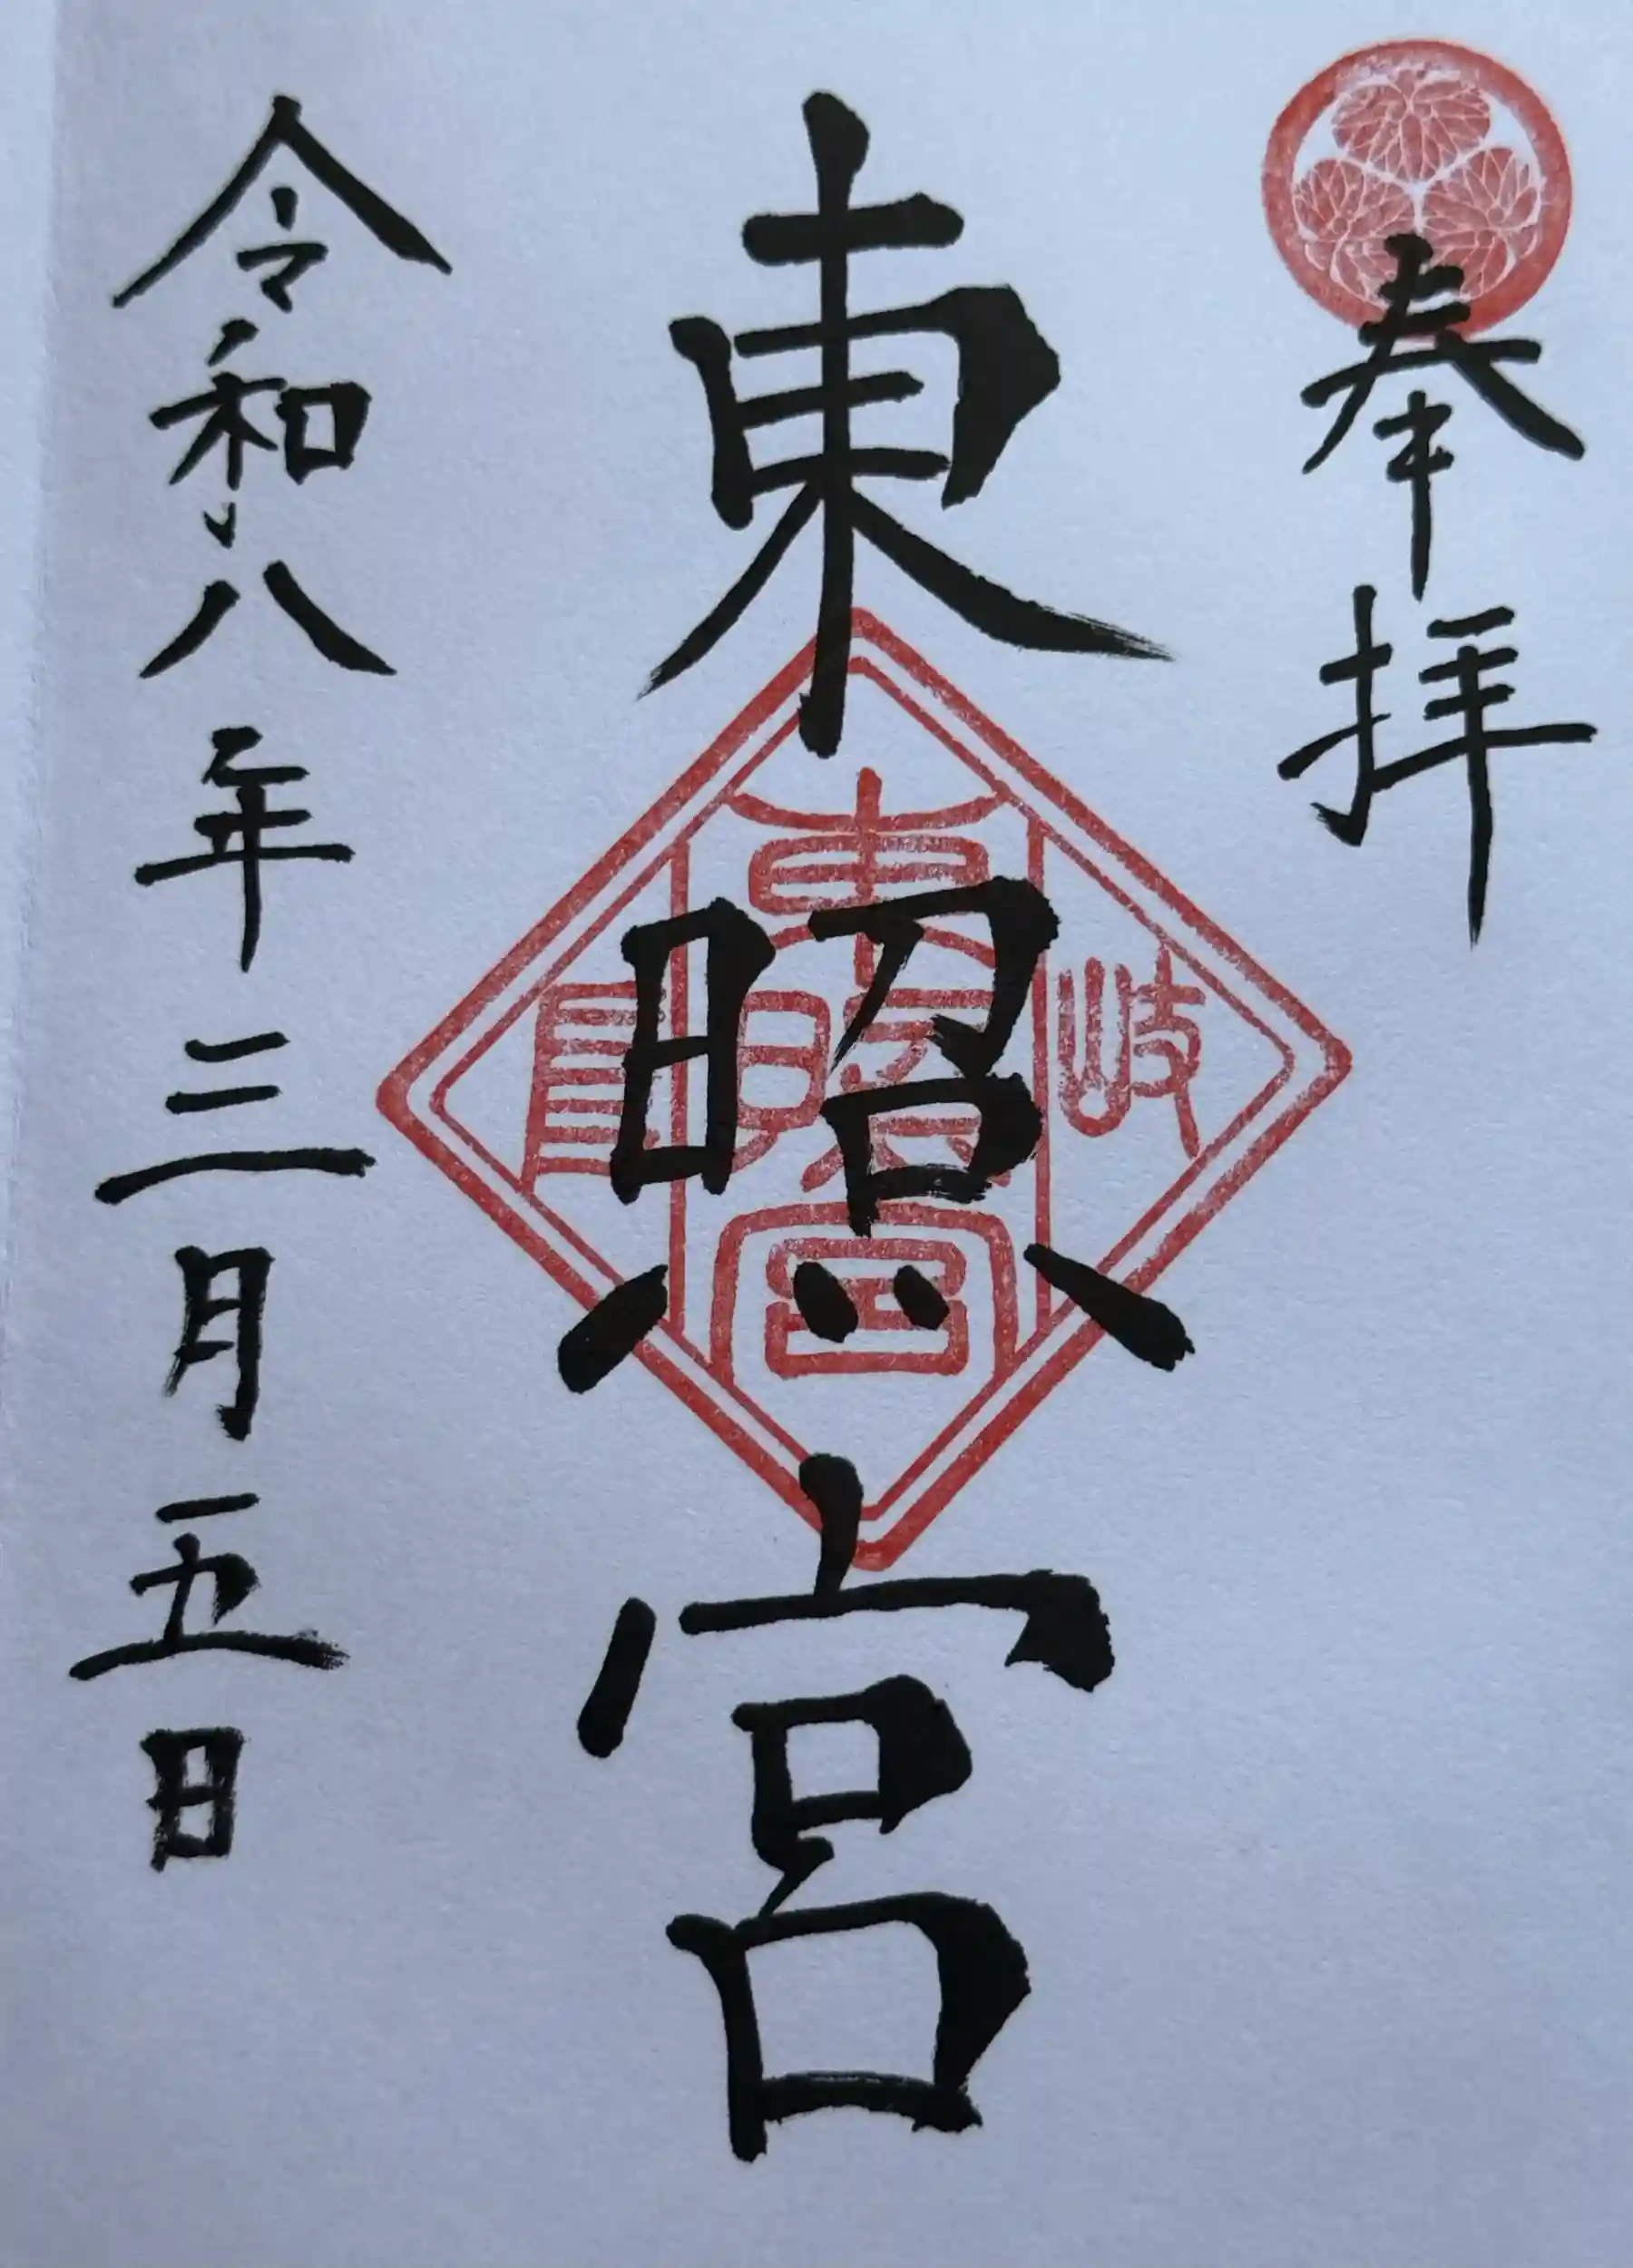 奉拝
東照宮
岐
東照宮
令和八年三月五日